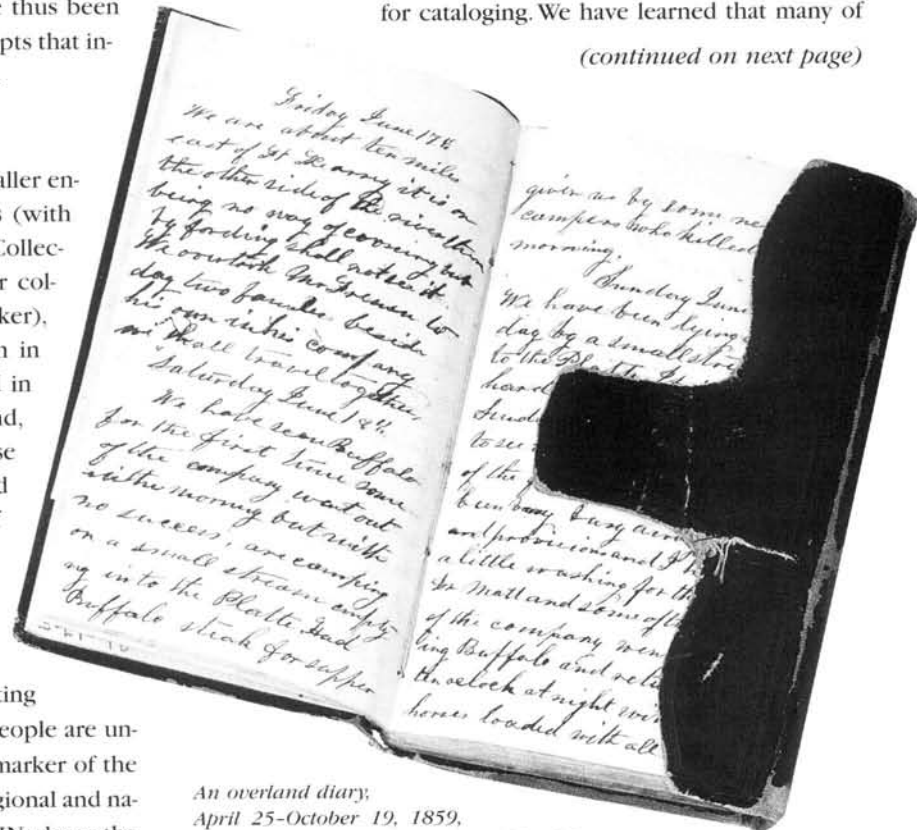 thus been
pts that in-
for cataloging. We have learned that many of
(continued on next page)
aller en-
s (with
Collec-
r col-
ker),
n in
l in
nd,
se
d
Friday June 17th
We are about ten miles
east of Ft Kearny it is on
the other side of the river there
being no way of crossing but
by fording shall not see it.
We overtook Mr to
day two families beside
his own in his company
we shall travel together.
Saturday June 18th
We have seen Buffalo
for the first time some
of the company went out
in the morning but with
no success. are camping
on a small stream empty-
ng into the Platte Had
Buffalo steak for supper
given us by some ne
campers who killed
morning.
Sunday June
We have been lying
day by a small stre
to the Platte
hard
Sund
to see
of the
been busy airi
and provisions and I h
a little washing for th
Dr Matt and some of th
of the company wen
ing Buffalo and retu
ten oclock at night wi
horses loaded with all
ting
eople are un-
marker of the
gional and na-
An overland diary,
April 25–October 19, 1859,